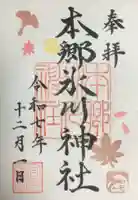 奉拝
本郷氷川神社
令和七年
十二月一日